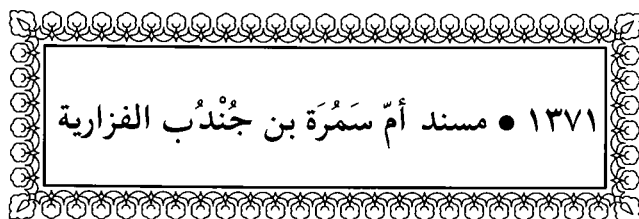 ١٣٧١ • مسند أمّ سَمُرَة بن جُنْدُب الفزارية